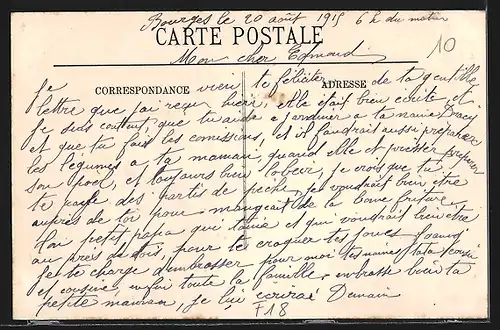 Bourges le 20 août 1915 6 h du matin
CARTE POSTALE
10
Mon cher Edmond
CORRESPONDANCE
ADRESSE
Je vien te féliciter de ta gentille
lettre que j'ai reçu hier, elle était bien écrite, et
je suis content, que tu aide a jardiner a ta mamie
et que tu fais les comissions, et il faudrait aussi
les légumes a ta maman, quand elle et presser
son poel, et toujours bien lobeir, je crois que tu
te paye des partis de peche, je voudrait bien être
auprès de toi pour mangeait de la bone friture
ton petit papa qui t'aime et qui voudrait bien être
au près de toi, pour te croquer tes joues
Je te charge d'embrasser pour moi tes
et cousine, enfin toute la famille, embrasse bien ta
petite maman, je lui écrirai Demain
F18